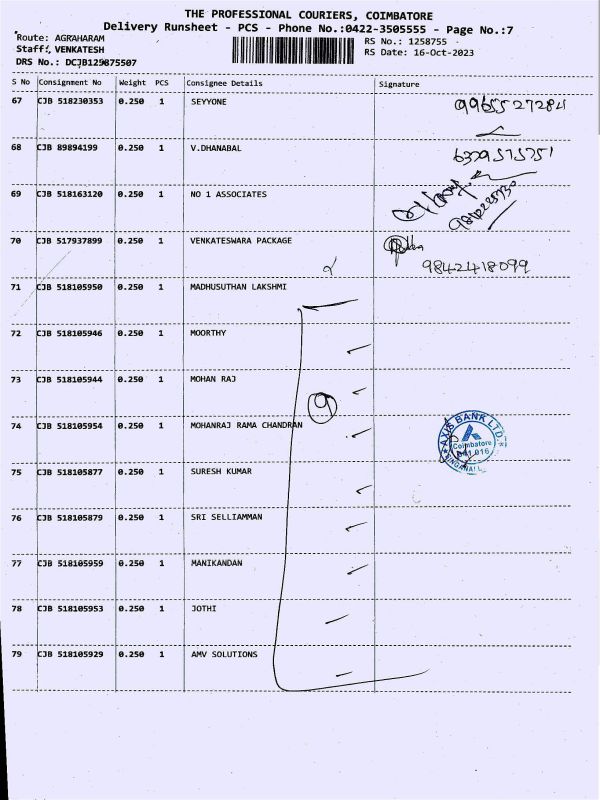 THE PROFESSIONAL COURIERS, COIMBATORE
Delivery Runsheet - PCS - Phone No.:0422-3505555 - Page No.:7
Route: AGRAHARAM
RS No.: 1258755
Staff: VENKATESH
RS Date: 16-Oct-2023
DRS No.: DCJB129875507
S No Consignment No Weight PCS Consignee Details Signature
67 CJB 518230353 0.250 1 SEYYONE 9965527284
68 CJB 89894199 0.250 1 V.DHANABAL
69 CJB 518163120 0.250 1 NO 1 ASSOCIATES
70 CJB 517937899 0.250 1 VENKATESWARA PACKAGE 9842418099
71 CJB 518105950 0.250 1 MADHUSUTHAN LAKSHMI
72 CJB 518105946 0.250 1 MOORTHY
73 CJB 518105944 0.250 1 MOHAN RAJ
9
74 CJB 518105954 0.250 1 MOHANRAJ RAMA CHANDRAN
AXIS BANK LTD.
Coimbatore
641 016
75 CJB 518105877 0.250 1 SURESH KUMAR
76 CJB 518105879 0.250 1 SRI SELLIAMMAN
77 CJB 518105959 0.250 1 MANIKANDAN
78 CJB 518105953 0.250 1 JOTHI
79 CJB 518105929 0.250 1 AMV SOLUTIONS